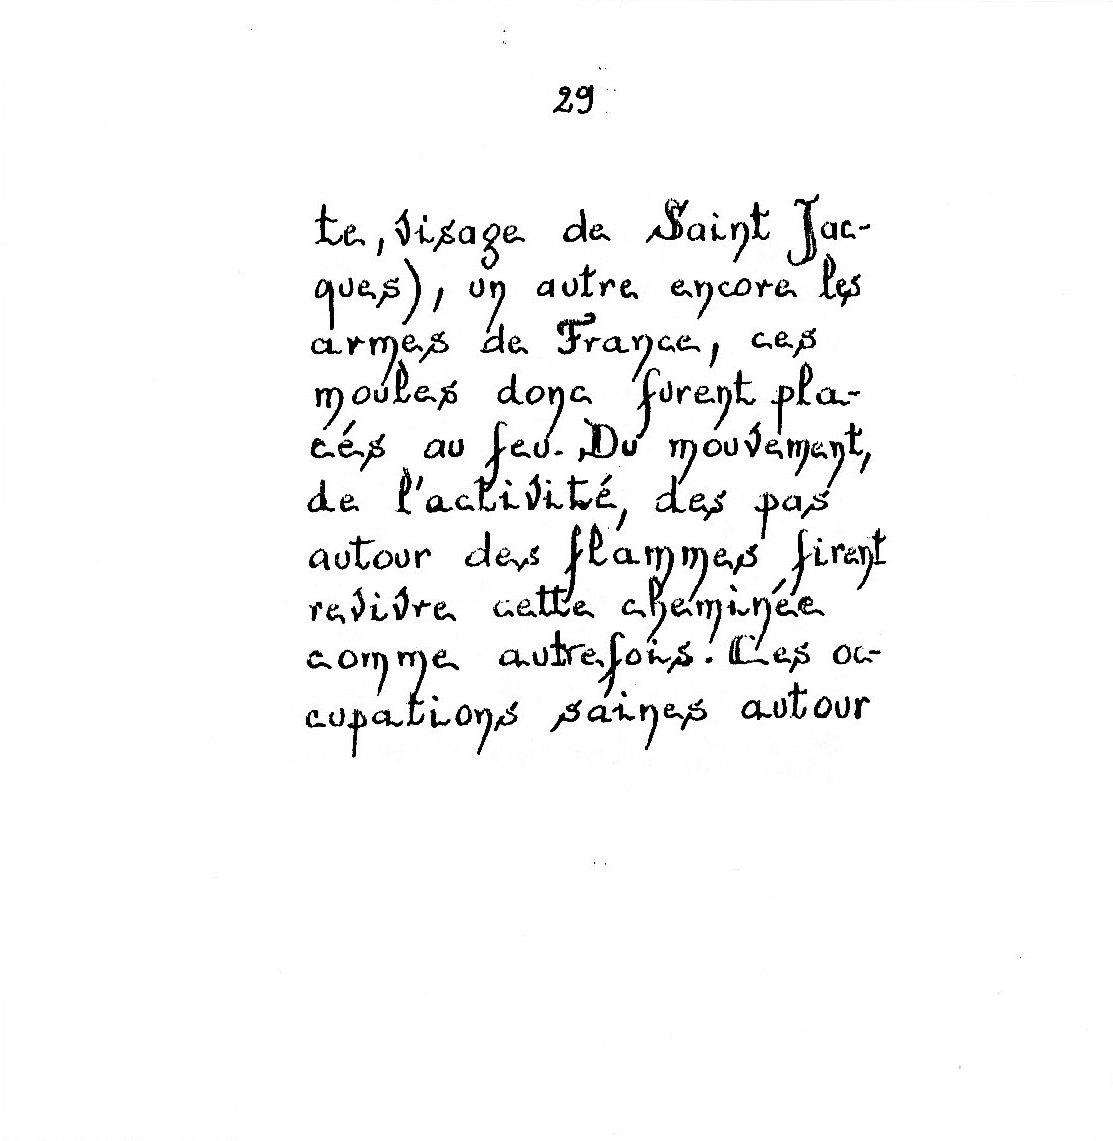 29
te, visage de Saint Jac-
ques), un autre encore les
armes de France, ces
moules donc furent pla-
cés au feu. Du mouvement,
de l'activité, des pas
autour des flammes firent
revivre cette cheminée
comme autrefois. Ces oc-
cupations saines autour